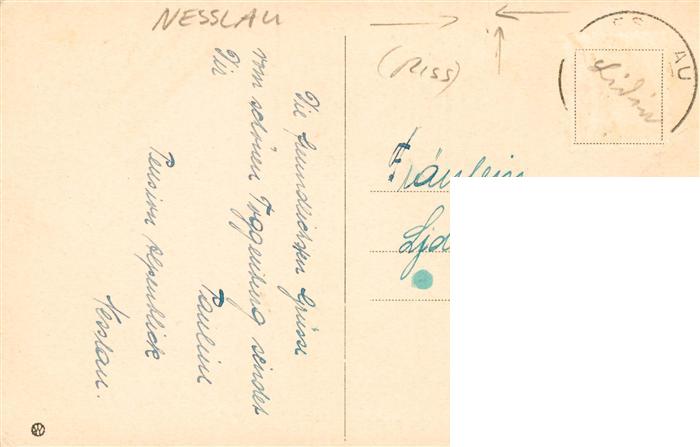 NESSLAU
(RISS)
ES AU
Die freundlichsten Grüsse
vom schönen Toggenburg sendet
Dir
Pauline
Pension Alpenblick
Nesslau.
Fräulein